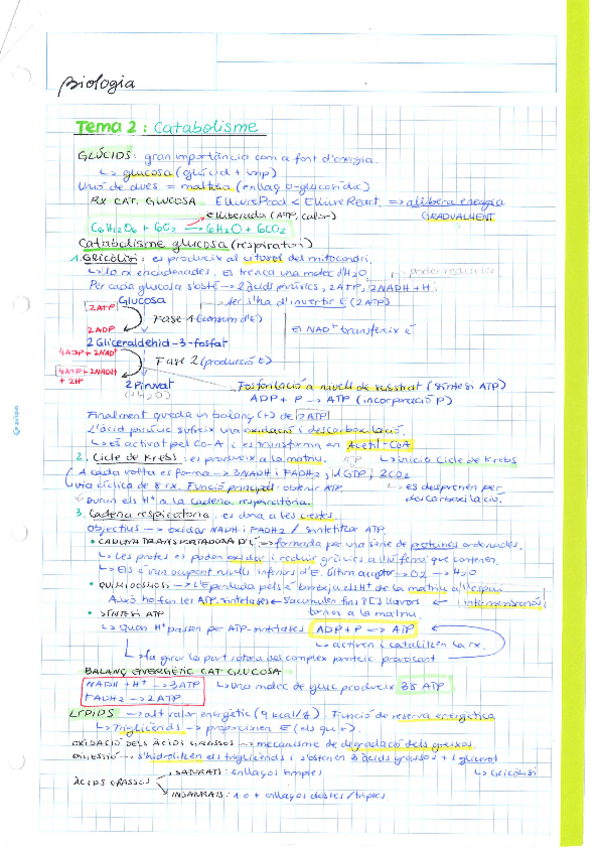 Biologia
Tema 2: Catabolisme
GLÚCIDS: gran importància com a font d'energia.
↳ glucosa (glúcid + imp)
Unió de dues = maltosa (enllaç O-glucosídic)
RX CAT. GLUCOSA E lliure Prod < E lliure React. => allibera energia
GRADUALMENT
E lliberada (ATP, calor)
C6H12O6 + 6O2 → 6H2O + 6CO2
Catabolisme glucosa (respiratori)
1. Glicòlisi: es produeix al citosol del mitocondri.
↳ 10 rx encadenades. Es trenca una molec d'H2O
poder reductor
Per cada glucosa s'obté → 2 àcids pirúvics, 2ATP, 2NADH + H
Glucosa
↳ Per s'ha d'invertir E (2ATP)
2ATP
Fase 1 (consum d'E)
2ADP
El NAD+ transfereix é
2 Gliceraldehid-3-fosfat
4ADP + 2NAD+
Fase 2 (producció E)
4ATP + 2NADH + 2H+
2 Piruvat
(+H2O)
Fosforilació a nivell de substrat (síntesi ATP)
ADP + P → ATP (incorporació P)
Finalment queda un balanç (+) de 2ATP
L'àcid pirúvic sofreix una oxidació i descarboxilació.
↳ és activat pel Co-A i es transforma en Acetil-CoA
2. Cicle de Krebs: es produeix a la matriu. ↳ inicia Cicle de Krebs
A cada volta es forma → 3NADH i FADH2, 1 GTP, 2CO2
ATP
Via cíclica de 8 rx. Funció principal: obtenir ATP. ↳ es desprenen per descarboxilació.
Duran els H+ a la Cadena respiratòria.
3. Cadena respiratòria: es dona a les crestes.
Objectius → oxidar NADH i FADH2 / sintetitzar ATP
• CADENA TRANSPORTADORA D'É → formada per una sèrie de proteïnes ordenades.
↳ Les protes es poden oxidar i reduir gràcies a UN Femo que contenen.
↳ Els é van ocupant nivells inferiors d'E. Últim aceptor → O2 → H2O
• QUIMIOSMOSI → L'E perduda pels é bombeja els H+ de la matriu a l'espai intermembranós
Això ho fan les ATP-sintetases ← S'acumulen fins
tornen a la matriu.
• SÍNTESI ATP
↳ Quan H+ passen per ATP-sintetases ADP + P → ATP
↳ activen i catalitzen la rx.
↳ fa girar la part rotora del complex proteic provocant
BALANÇ ENERGÈTIC CAT GLUCOSA
NADH + H+ → 3ATP ↳ Una molec de gluc produeix 38 ATP
FADH2 → 2ATP
LÍPIDS → alt valor energètic (9 kcal/g). Funció de reserva energètica
↳ Triglicèrids → proporcionen E (els qui f).
OXIDACIÓ DELS ÀCIDS GRASSOS → mecanisme de degradació dels greixos.
DIGESTIÓ → s'hidrolitzen els triglicèrids i s'obtenen 3 àcids grassos + 1 glicerol
↳ GLICÒLISI
ÀCIDS GRASSOS
SATURATS: enllaços simples
INSATURATS: 1 o + enllaços dobles/triples